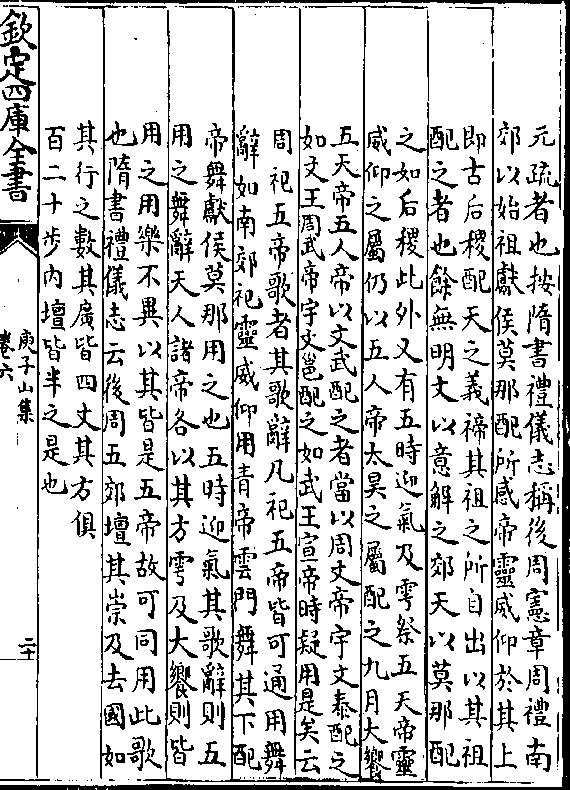 元疏者也按隋書禮儀志稱後周憲章周禮南
郊以始祖獻侯莫那配所感帝靈威仰於其上
即古后稷配天之義禘其祖之所自出以其祖
配之者也餘無明文以意解之郊天以莫那配
之如后稷此外又有五時迎氣及雩祭五天帝靈
威仰之屬仍以五人帝太昊之屬配之九月大饗
五天帝五人帝以文武配之者當以周文帝宇文泰配之
如文王周武帝宇文邕配之如武王宣帝時疑用是矣云
周祀五帝歌者其歌辭凡祀五帝皆可通用舞
辭如南郊祀靈威仰用青帝雲門舞其下配
帝舞獻侯莫那用之也五時迎氣其歌辭則五
用之舞辭天人諸帝各以其方雩及大饗則皆
用之用樂不異以其皆是五帝故可同用此歌
也隋書禮儀志云後周五郊壇其崇及去國如
其行之數其廣皆四丈其方俱
百二十步內壇皆半之是也
欽定四庫全書
庾子山集
卷六
二十